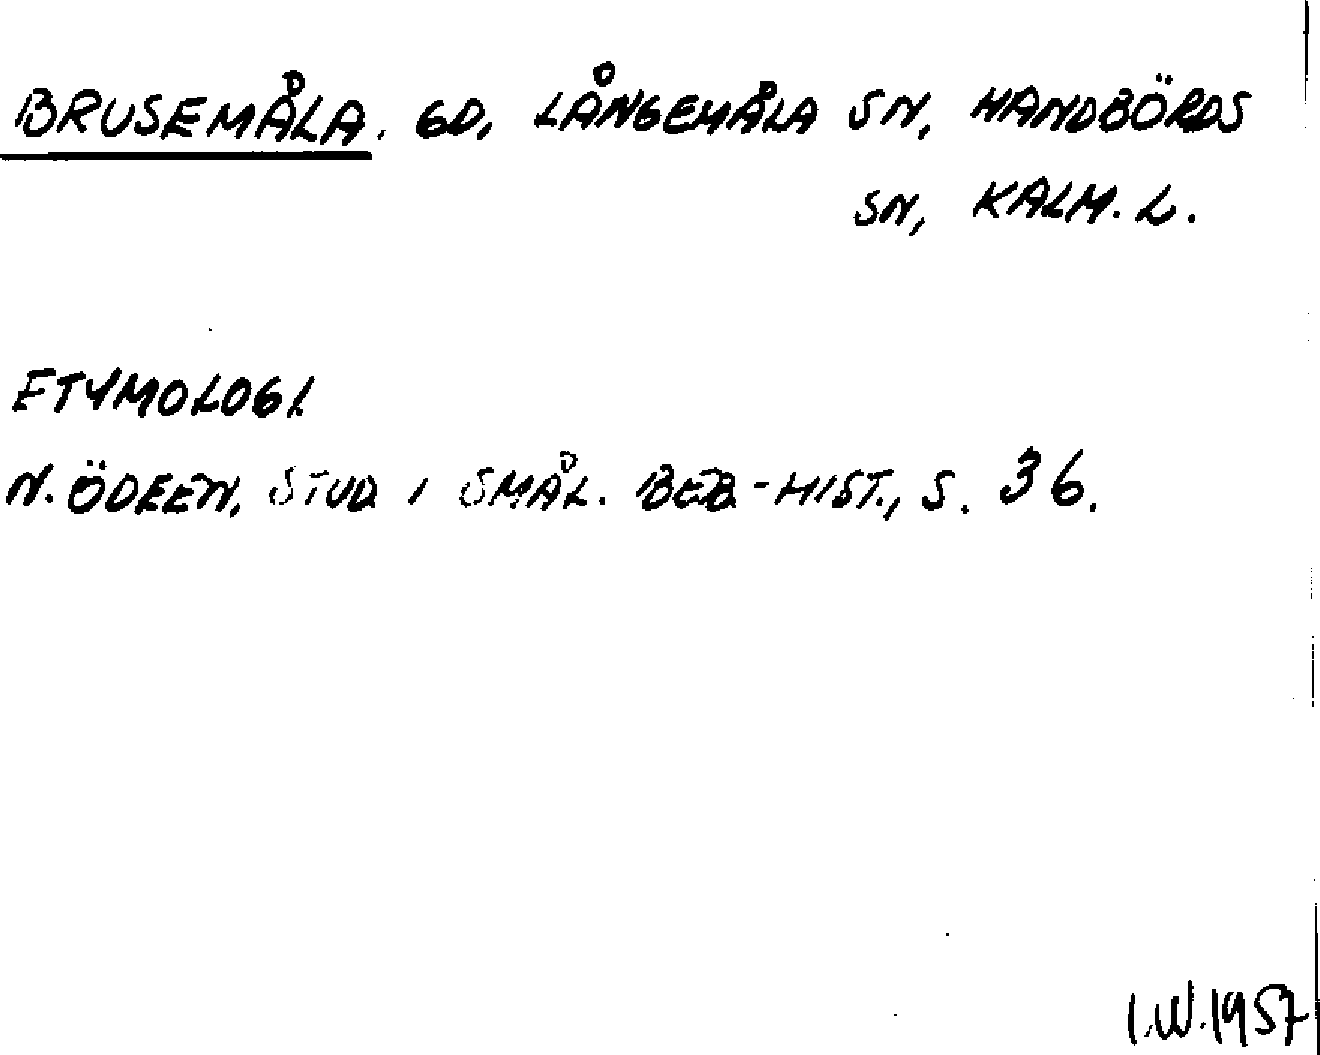 BRUSEMÅLA. GD, LÅNGEMÅLA SN, HANDBÖRDS
SN, KALM. L.
ETYMOLOGI
N. ÖDEEN, STUD I SMÅL. BEB-HIST., S. 36.
I.W.1957